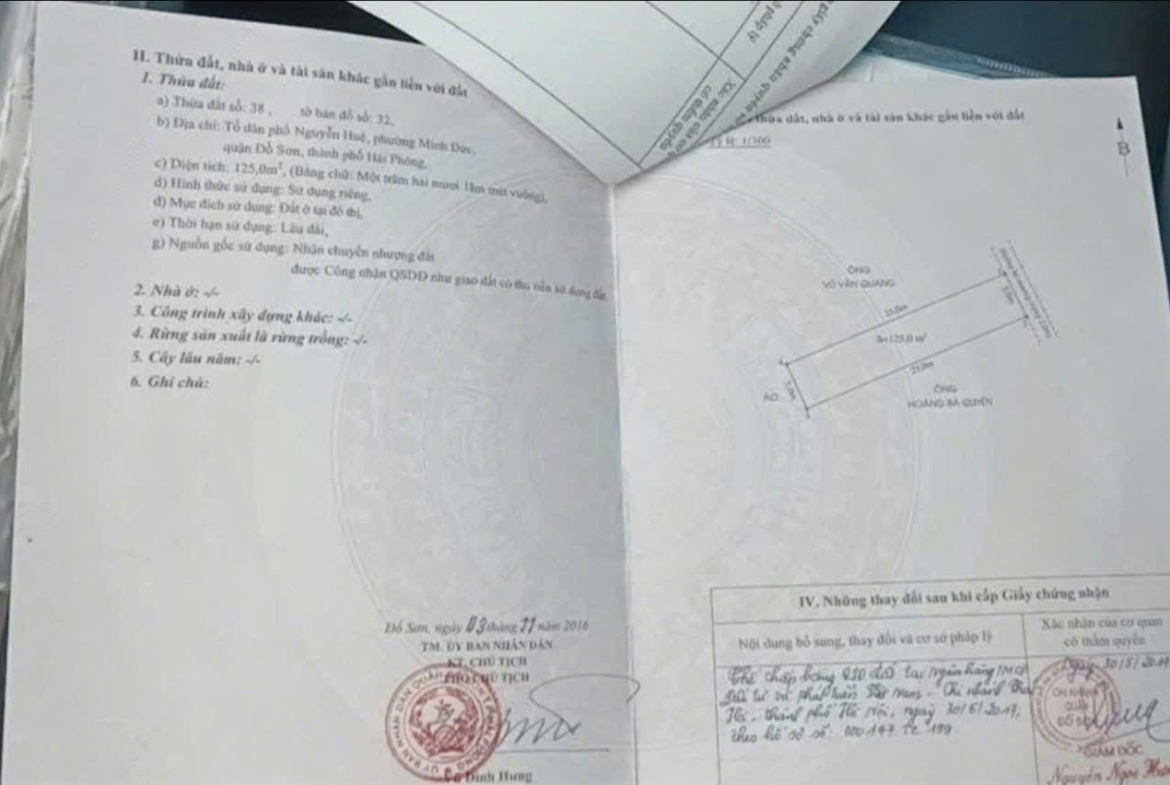 II. Thửa đất, nhà ở và tài sản khác gắn liền với đất
1. Thửa đất:
a) Thửa đất số: 38 , tờ bản đồ số: 32,
b) Địa chỉ: Tổ dân phố Nguyễn Huệ, phường Minh Đức,
quận Đồ Sơn, thành phố Hải Phòng,
c) Diện tích: 125,0m², (Bằng chữ: Một trăm hai mươi lăm mét vuông),
d) Hình thức sử dụng: Sử dụng riêng,
đ) Mục đích sử dụng: Đất ở tại đô thị,
e) Thời hạn sử dụng: Lâu dài,
g) Nguồn gốc sử dụng: Nhận chuyển nhượng đất
được Công nhận QSDĐ như giao đất có thu tiền sử dụng đất.
2. Nhà ở: -/-
3. Công trình xây dựng khác: -/-
4. Rừng sản xuất là rừng trồng: -/-
5. Cây lâu năm: -/-
6. Ghi chú:
Đồ Sơn, ngày 03 tháng 11 năm 2016
TM. ỦY BAN NHÂN DÂN
KT. CHỦ TỊCH
PHÓ CHỦ TỊCH
Đình Hưng
thửa đất, nhà ở và tài sản khác gắn liền với đất
lệ: 1/300
B
ÔNG
VŨ VĂN QUANG
25,0m
S=125,0 m²
25,0m
5,0m
5,0m
AO
ÔNG
HOÀNG BÁ QUYỀN
IV. Những thay đổi sau khi cấp Giấy chứng nhận
Nội dung bổ sung, thay đổi và cơ sở pháp lý
Xác nhận của cơ quan
có thẩm quyền
Thế chấp bằng QSD đất tại ngân hàng TMCP
Đầu tư và phát triển Việt Nam - Chi nhánh
thành phố Hà Nội, ngày 30/6/2017,
theo hồ sơ số:
CHI NHÁNH
QUẬN
ĐỒ SƠN
GIÁM ĐỐC
Nguyễn Ngọc